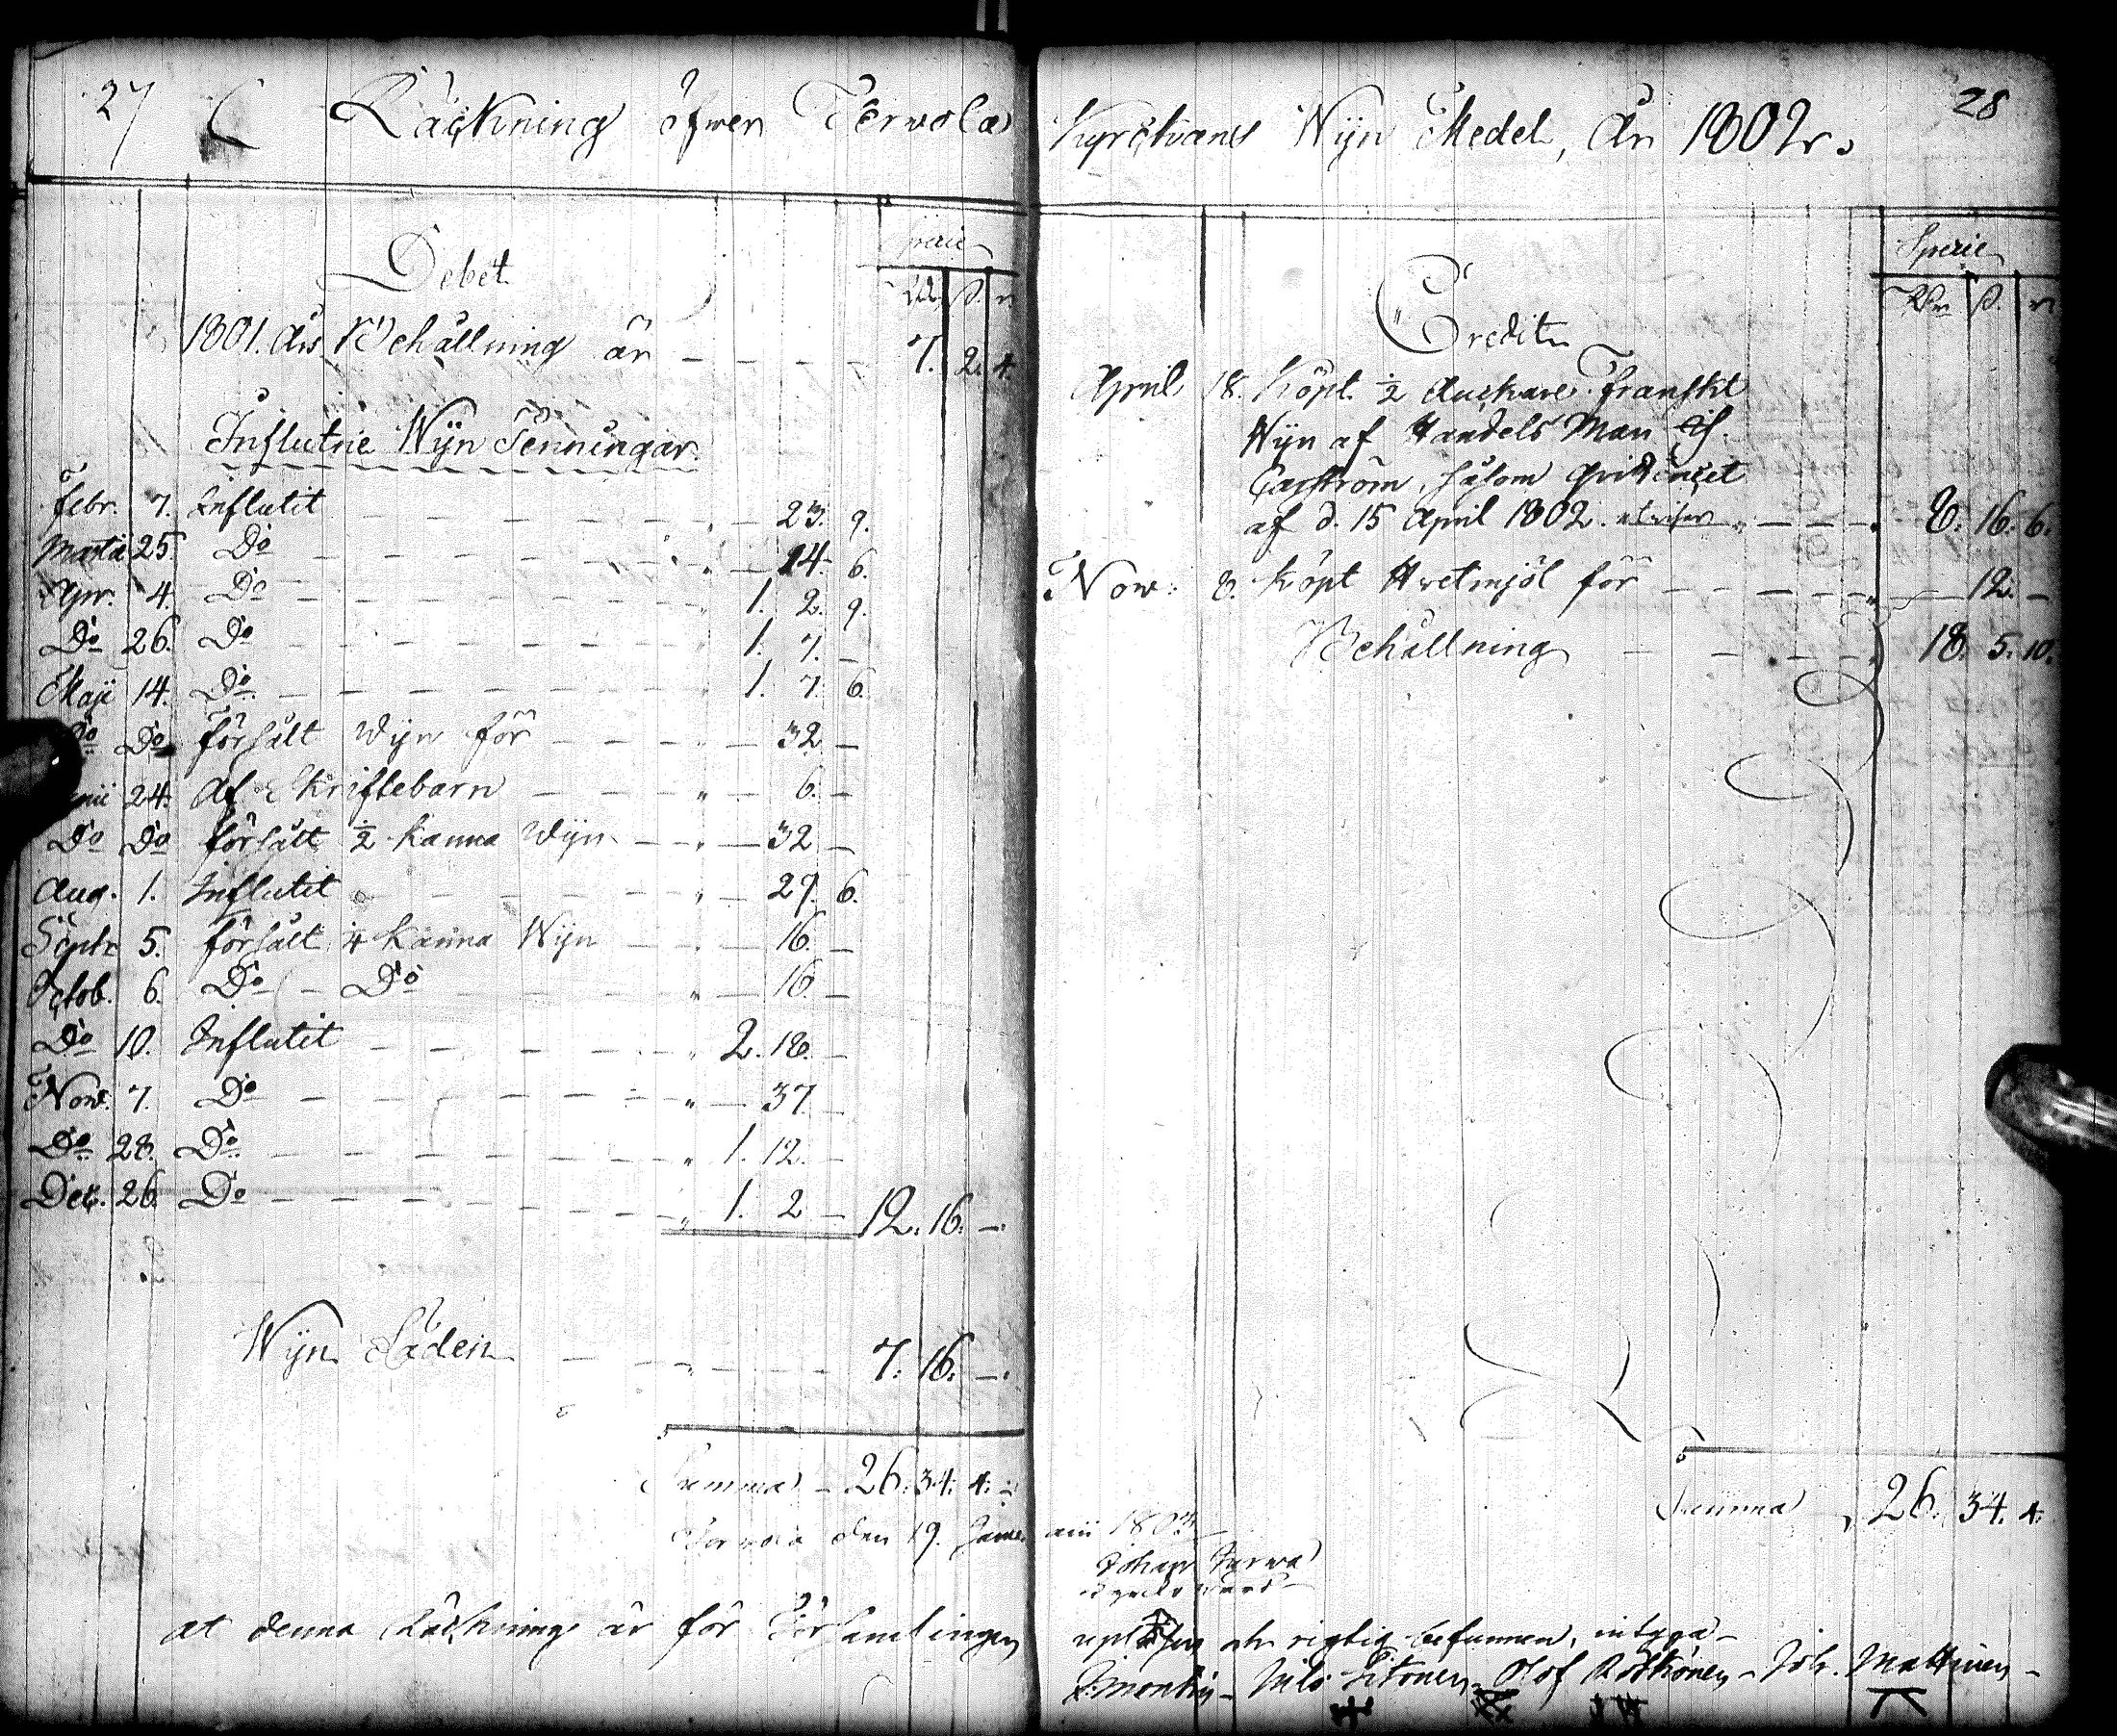 27 Räckning öfwer Terwola
Debet
Specie
Rd. ß. r.
1801. Års Behållning är 7. 2. 4.
Influtne Wijn Penningar.
Febr. 7. Influtit 23. 9.
Martii 25. Do 14. 6.
Apr. 4. Do 1. 2. 9.
Do 26. Do 1. 7. –
Maji 14. Do 1. 7. 6.
Do Do försålt Wijn för 32 –
24. Af Skriftebarn 6. –
Do Do försålt ½ Kanna Wijn 32 –
Aug. 1. Influtit 27. 6.
Septr 5. försålt ¼ Kanna Wijn 16. –
Octob. 6. Do – Do 16. –
Do 10. Influtit 2. 18. –
Now. 7. Do 37. –
Do 28. Do 1. 12. –
Dec. 26. Do 1. 2 – 12. 16. –
Wijn Säden 7. 16. –
Summa – 26. 34. 4.
Kyrckans Wijn Medel, År 1802. 28
Credit
Specie
Rdr ß. r
April 18. Köpt ½ Anckare Franskt
Wijn af Handels Man
såsom Quittencet
af d. 15 April 1802. utwisar 8. 16. 6.
Now: 8. Köpt Hwetmjöl för 12. –
Behållning 18. 5. 10.
Summa 26. 34. 4.
Terwola den 19. Januarii 1803
Johan
at denna Räckning är för Församlingen upläsen och rigtig befunnen, intyga –
Nils Olof Joh. Mattinen –